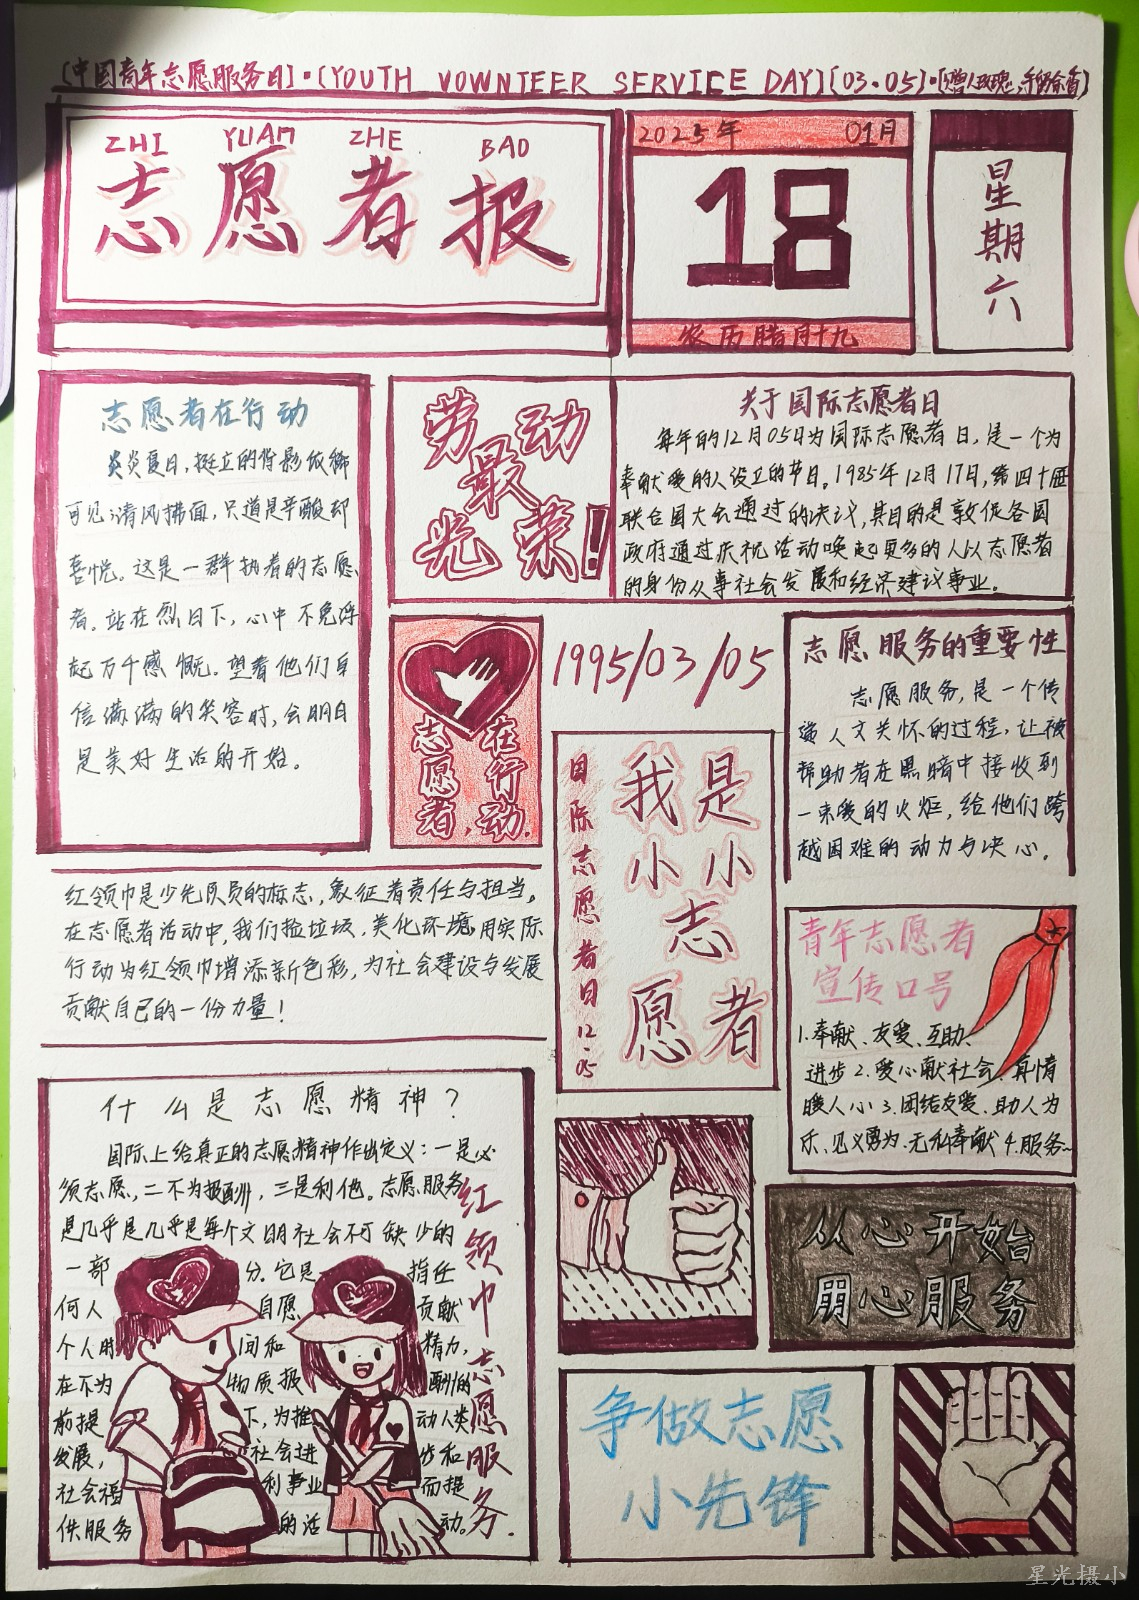 [中国青年志愿服务日]·[YOUTH VOWNTEER SERVICE DAY][03·05]·[赠人玫瑰,手留余香]
ZHI YUAN ZHE BAO
志愿者报
2025年 01月
18
农历腊月十九
星期六
志愿者在行动
炎炎夏日,挺立的背影依稀
可见;清风拂面,只道是辛酸却
喜悦。这是一群执着的志愿
者。站在烈日下,心中不免浮
起万千感慨。望着他们自
信满满的笑容时,会明白
是美好生活的开始。
劳动
最
光荣!
关于国际志愿者日
每年的12月05日为国际志愿者日,是一个为
奉献爱的人设立的节日。1985年12月17日,第四十届
联合国大会通过的决议,其目的是敦促各国
政府通过庆祝活动唤起更多的人以志愿者
的身份从事社会发展和经济建议事业。
志愿者,在行动.
1995/03/05
国际志愿者日12.05
我是
小小
志
愿者
志愿服务的重要性
志愿服务,是一个传
递人文关怀的过程,让被
帮助者在黑暗中接收到
一束爱的火炬,给他们跨
越困难的动力与决心。
红领巾是少先队员的标志,象征着责任与担当。
在志愿者活动中,我们捡垃圾,美化环境,用实际
行动为红领巾增添新色彩,为社会建设与发展
贡献自己的一份力量!
青年志愿者
宣传口号
1.奉献、友爱、互助、
进步 2.爱心献社会、真情
暖人心 3.团结友爱、助人为
乐、见义勇为、无私奉献 4.服务~
什么是志愿精神?
国际上给真正的志愿精神作出定义:一是必
须志愿,二不为报酬,三是利他。志愿服务
是几乎是几乎是每个文明社会不可缺少的
一部分.它是指任
何人自愿贡献
个人时间和精力,
在不为物质报酬的
前提下,为推动人类
发展,社会进步和
社会福利事业而提
供服务的活动。
红领巾志愿服务.
从心开始
朋心服务
争做志愿
小先锋
星光摄小